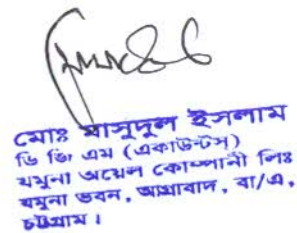 মোঃ মাসুদুল ইসলাম
ডি জি এম (একাউন্টস)
যমুনা অয়েল কোম্পানী লিঃ
যমুনা ভবন, আগ্রাবাদ, বা/এ,
চট্টগ্রাম।